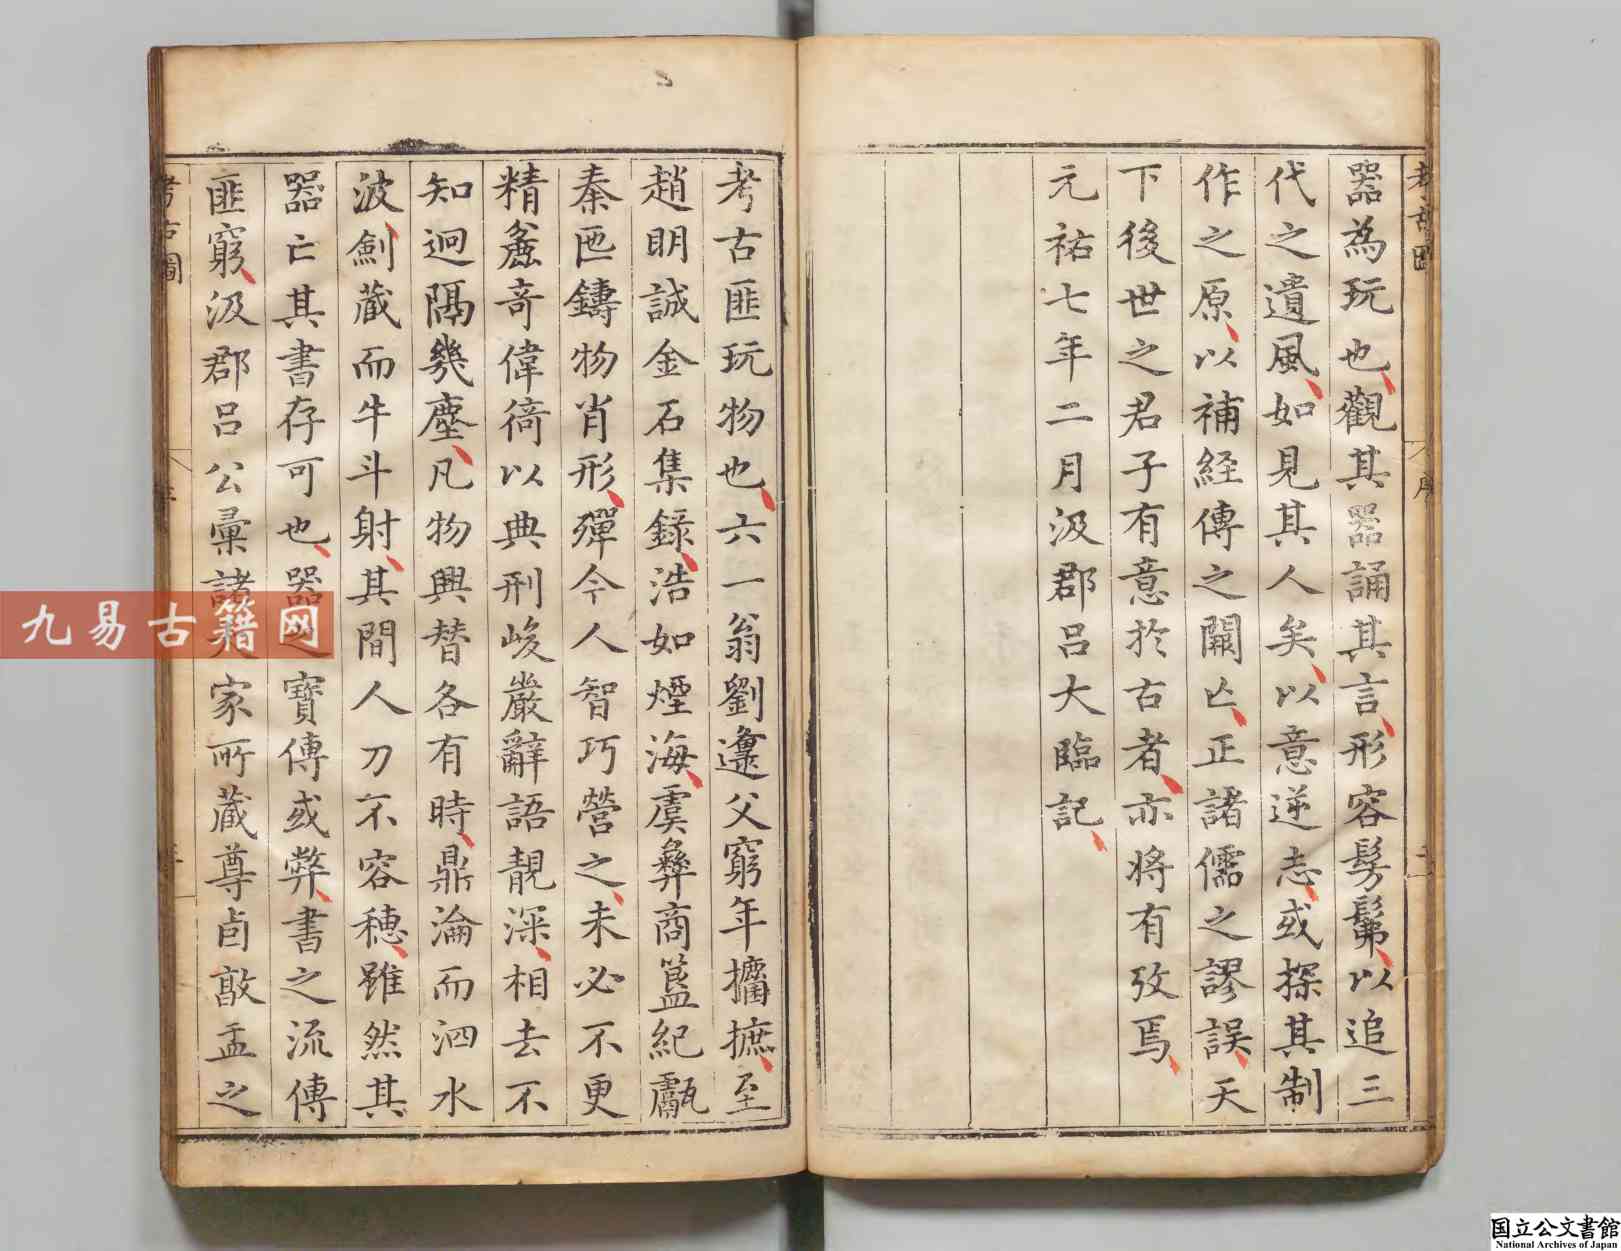 器為玩也觀其器誦其言形容髣髴以追三
代之遺風如見其人矣以意逆志或探其制
作之原以補經傳之闕亾正諸儒之謬誤天
下後世之君子有意於古者亦將有攷焉
元祐七年二月汲郡呂大臨記
考古匪玩物也六一翁劉邍父窮年攟摭至
趙明誠金石集錄浩如煙海虞彝商簋紀甗
秦匜鑄物肖形殫今人智巧營之未必不更
精麄奇偉徛以典刑峻嚴辭語靚深相去不
知迥隔幾塵凡物興替各有時鼎淪而泗水
波劍藏而牛斗射其間人力不容穗雖然其
器亡其書存可也器寶傳或弊書之流傳
匪窮汲郡呂公彙諸家所藏尊卣敦盂之
考古圖
序
考古圖
九易古籍网
国立公文書館
National Archives of Japan